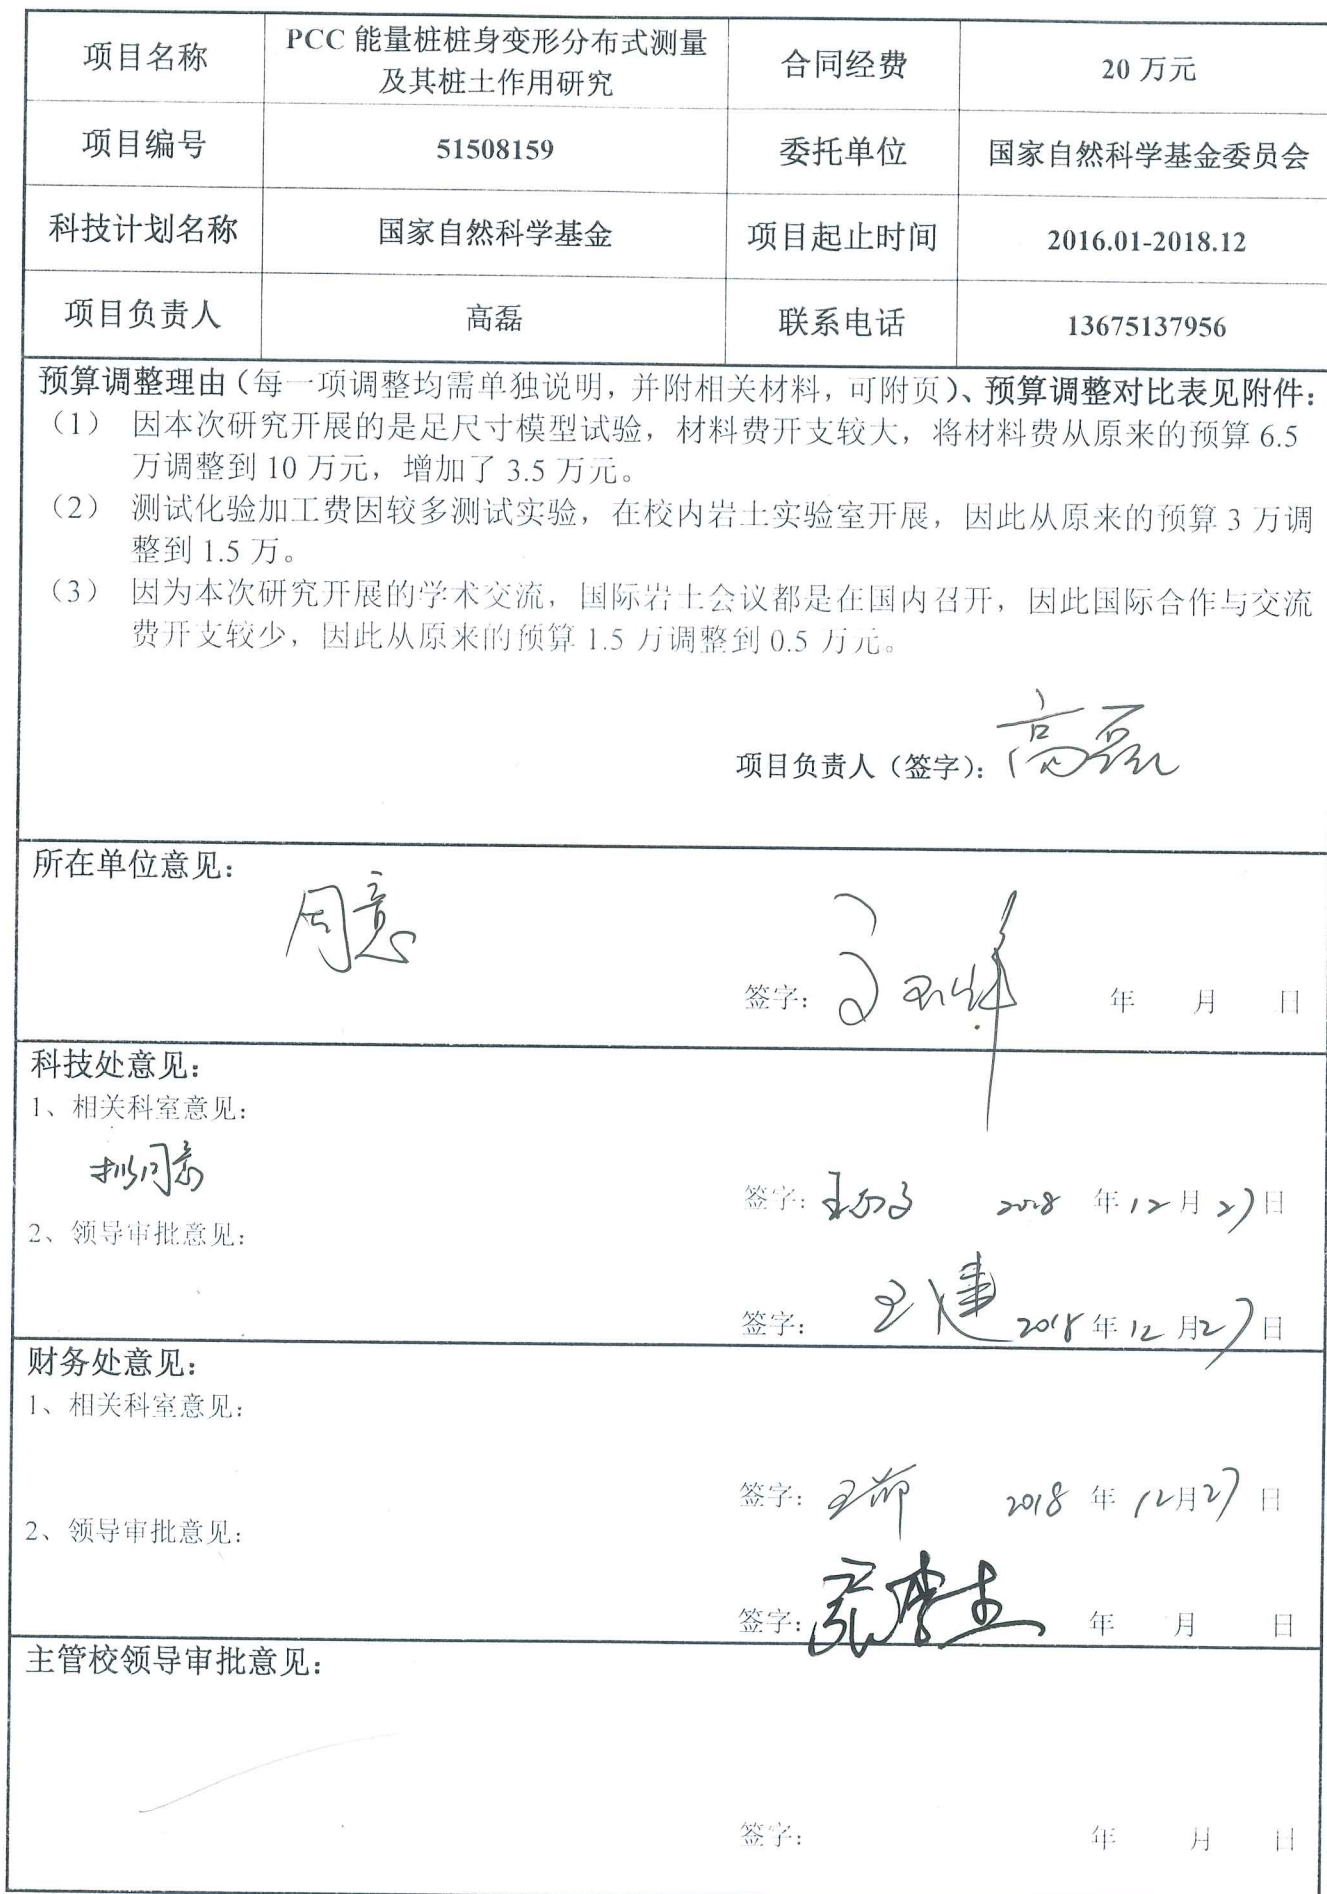 项目名称 PCC 能量桩桩身变形分布式测量 合同经费 20 万元
及其桩土作用研究
项目编号 51508159 委托单位 国家自然科学基金委员会
科技计划名称 国家自然科学基金 项目起止时间 2016.01-2018.12
项目负责人 高磊 联系电话 13675137956
预算调整理由（每一项调整均需单独说明，并附相关材料，可附页）、预算调整对比表见附件：
（1） 因本次研究开展的是足尺寸模型试验，材料费开支较大，将材料费从原来的预算 6.5
万调整到 10 万元，增加了 3.5 万元。
（2） 测试化验加工费因较多测试实验，在校内岩土实验室开展，因此从原来的预算 3 万调
整到 1.5 万。
（3） 因为本次研究开展的学术交流，国际岩土会议都是在国内召开，因此国际合作与交流
费开支较少，因此从原来的预算 1.5 万调整到 0.5 万元。
项目负责人（签字）：高磊
所在单位意见：
同意
签字： 年 月 日
科技处意见：
1、相关科室意见：
拟同意
签字： 2018 年 12 月 27 日
2、领导审批意见：
签字：王健 2018 年 12 月 27 日
财务处意见：
1、相关科室意见：
签字： 2018 年 12 月 27 日
2、领导审批意见：
签字： 年 月 日
主管校领导审批意见：
签字： 年 月 日